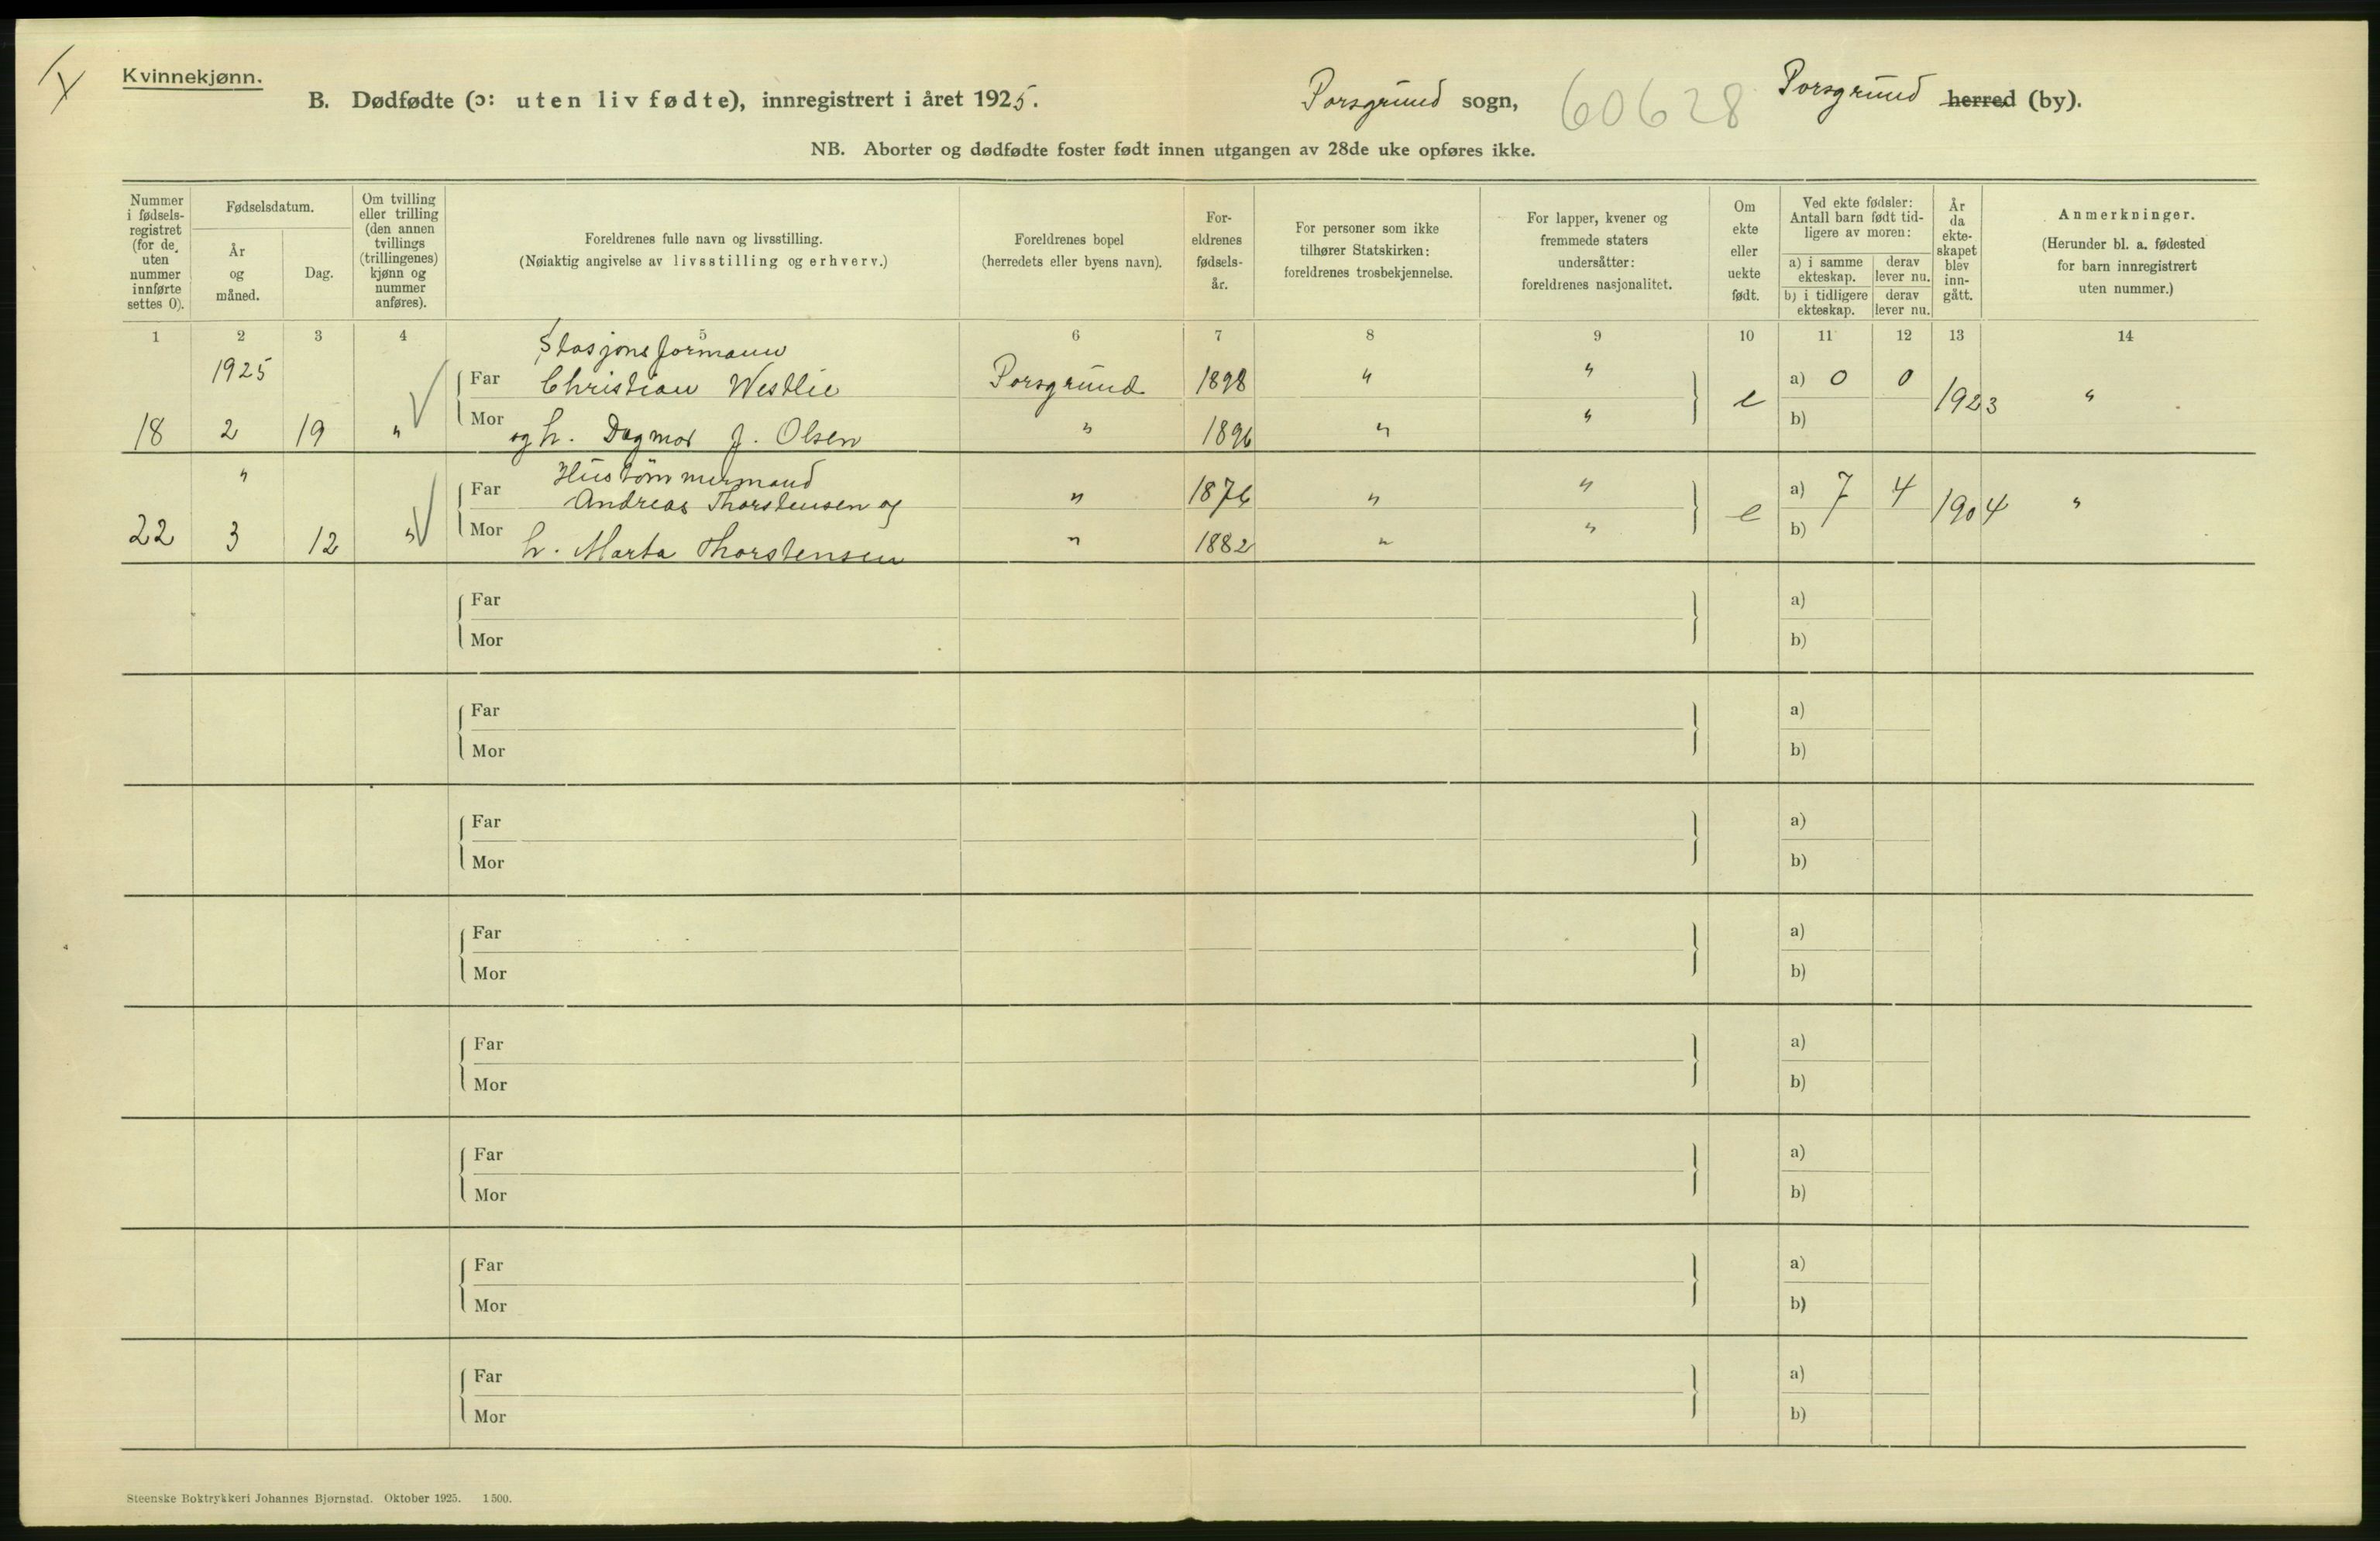 Kvinnekjønn.
B. Dødfødte (ɔ: uten liv fødte), innregistrert i året 1925.
Porsgrund sogn, 60628 Porsgrund herred (by).
NB. Aborter og dødfødte foster født innen utgangen av 28de uke opføres ikke.
Nummer i fødsels-registret (for de uten nummer innførte settes 0).
Fødselsdatum.
År og måned.
Dag.
Om tvilling eller trilling (den annen tvillings (trillingenes) kjønn og nummer anføres).
Foreldrenes fulle navn og livsstilling.
(Nøiaktig angivelse av livsstilling og erhverv.)
Foreldrenes bopel
(herredets eller byens navn).
For-eldrenes fødsels-år.
For personer som ikke tilhører Statskirken: foreldrenes trosbekjennelse.
For lapper, kvener og fremmede staters undersåtter: foreldrenes nasjonalitet.
Om ekte eller uekte født.
Ved ekte fødsler: Antall barn født tid-ligere av moren:
a) i samme ekteskap. derav lever nu.
b) i tidligere ekteskap. derav lever nu.
År da ekte-skapet blev inn-gått.
Anmerkninger.
(Herunder bl. a. fødested for barn innregistrert uten nummer.)
1 2 3 4 5 6 7 8 9 10 11 12 13 14
Stasjonsformann
1925 Far Christian Westlie Porsgrund 1898 " " a) 0 0
18 2 19 " Mor og h. Dagmar J. Olsen " 1896 " " e b) 1923 "
" Hustømmermand
Far Andreas Thorstensen og " 1876 " " a) 7 4
22 3 12 " Mor h. Marta Thorstensen " 1882 " " e b) 1904 "
Far a)
Mor b)
Far a)
Mor b)
Far a)
Mor b)
Far a)
Mor b)
Far a)
Mor b)
Far a)
Mor b)
Far a)
Mor b)
Far a)
Mor b)
Steenske Boktrykkeri Johannes Bjørnstad. Oktober 1925. 1500.